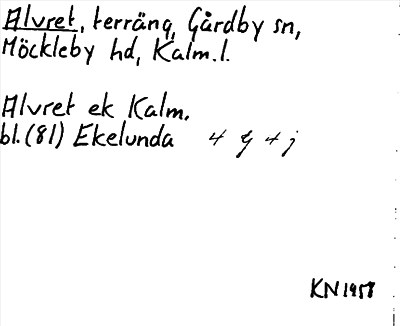 Alvret, terräng, Gårdby sn,
Möckleby hd, Kalm.l.
Alvret ek Kalm.
bl.(81) Ekelunda 4 G 4 j
KN 1958